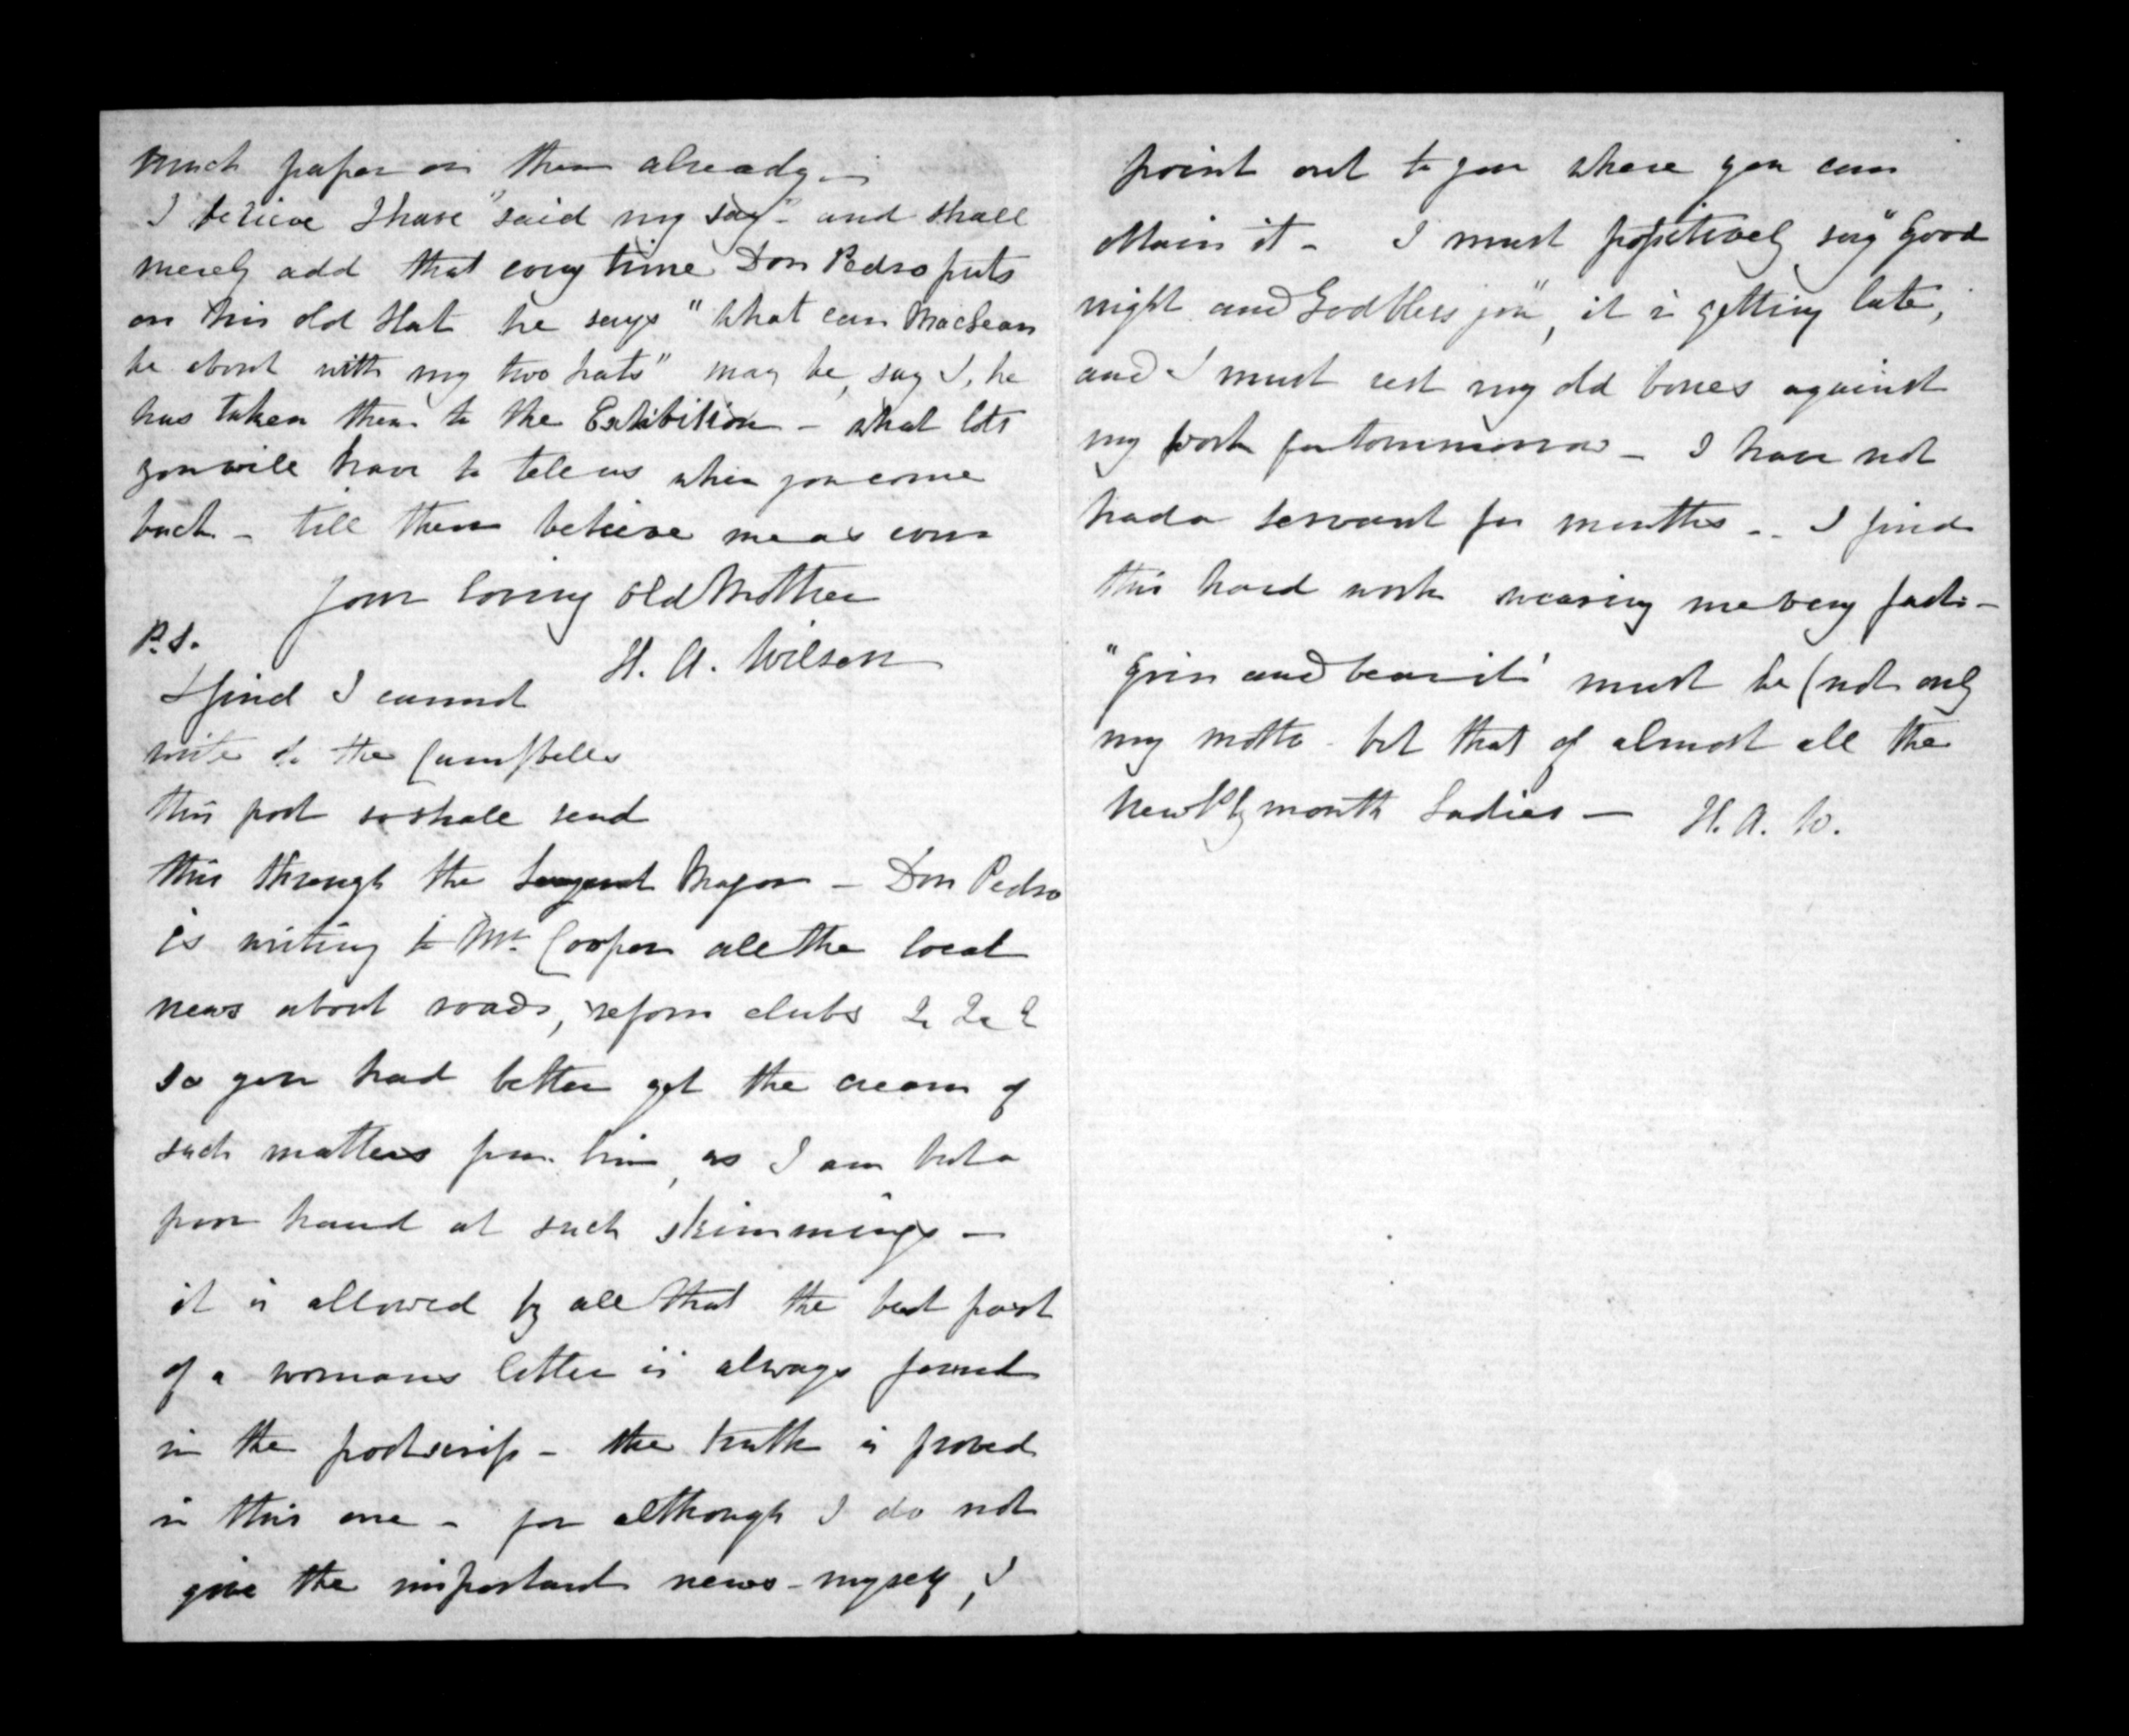 much paper on them already.
I believe I have "said my say" and shall
merely add that every time Don Pedro puts
on his old Hat he says "What can MacLean
be about with my two hats" may be, say I, he
has taken them to the Exhibition - what lots
you will have to tell us when you come
back - till then believe me as ever
Your loving old Mother
H. A. Wilson
P.S.
I find I cannot
write to the Campbells
this post so shall send
this through the Sergeant Major - Don Pedro
is writing to Mr. Cooper all the local
news about roads, reform clubs &c &c &c
so you had better get the cream of
such matters from him, as I am but a
poor hand at such skimmings -
it is allowed by all that the best part
of a womans letter is always found
in the postscrip - the truth is proved
in this one - for although I do not
give the important news - myself, I
point out to you where you can
obtain it - I must positively say "Good
night and God bless you", it is getting late,
and I must rest my old bones against
my work for tommorrow - I have not
had a servant for months - I find
this hard work wearing me very fast -
"grin and bear it" must be (not only
my motto - but that of almost all the
New Plymouth Ladies - H. A. W.